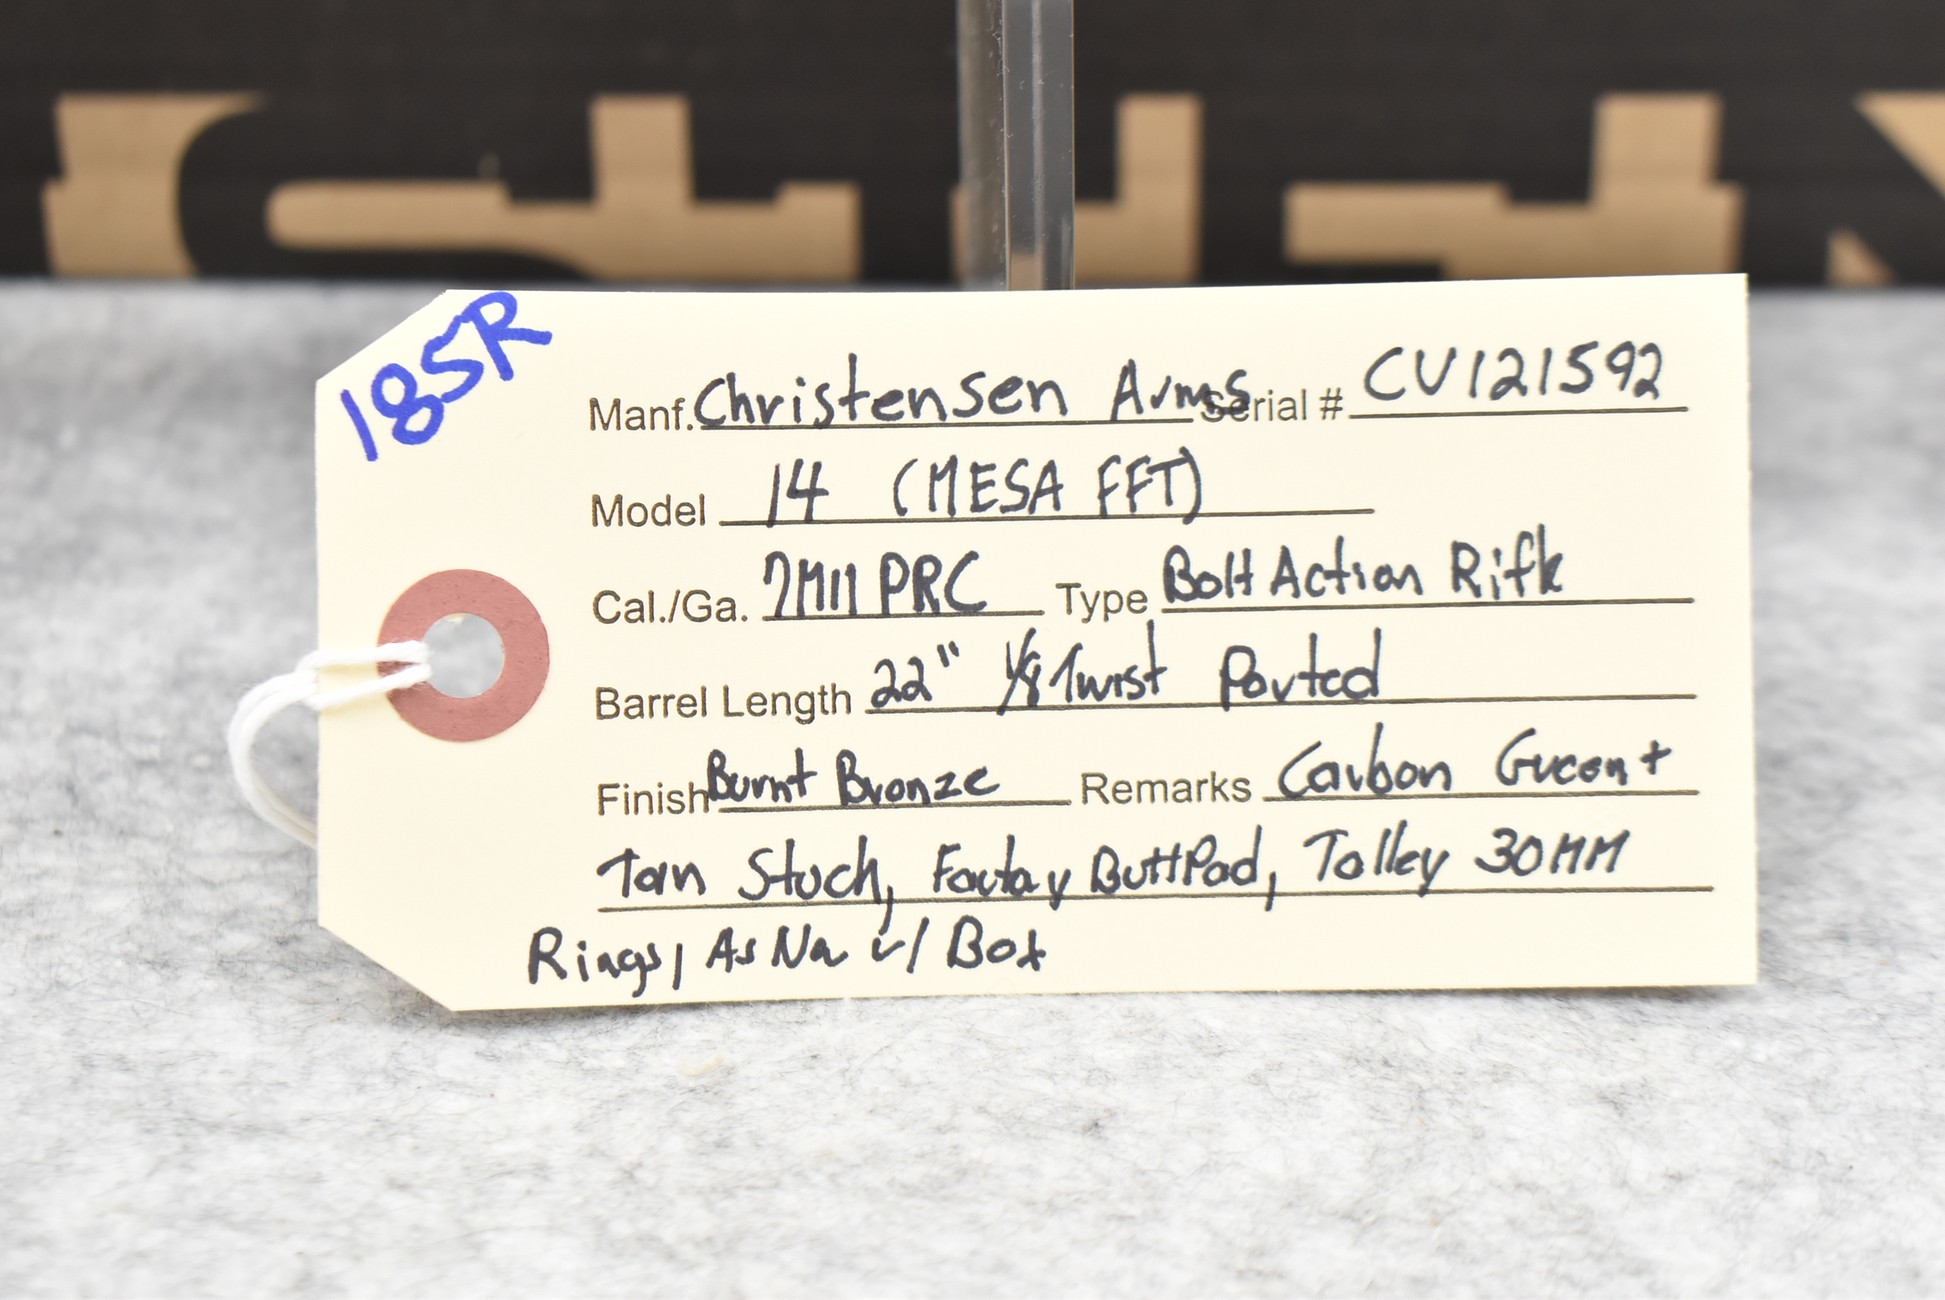 185R
Manf. Christensen Arms Serial # CV121592
Model 14 (MESA FFT)
Cal./Ga. 7MM PRC Type Bolt Action Rifle
Barrel Length 22" 1/8 Twist Ported
Finish Burnt Bronze Remarks Carbon Green +
Tan Stock, Factory ButtPad, Talley 30MM
Rings, As New w/ Box